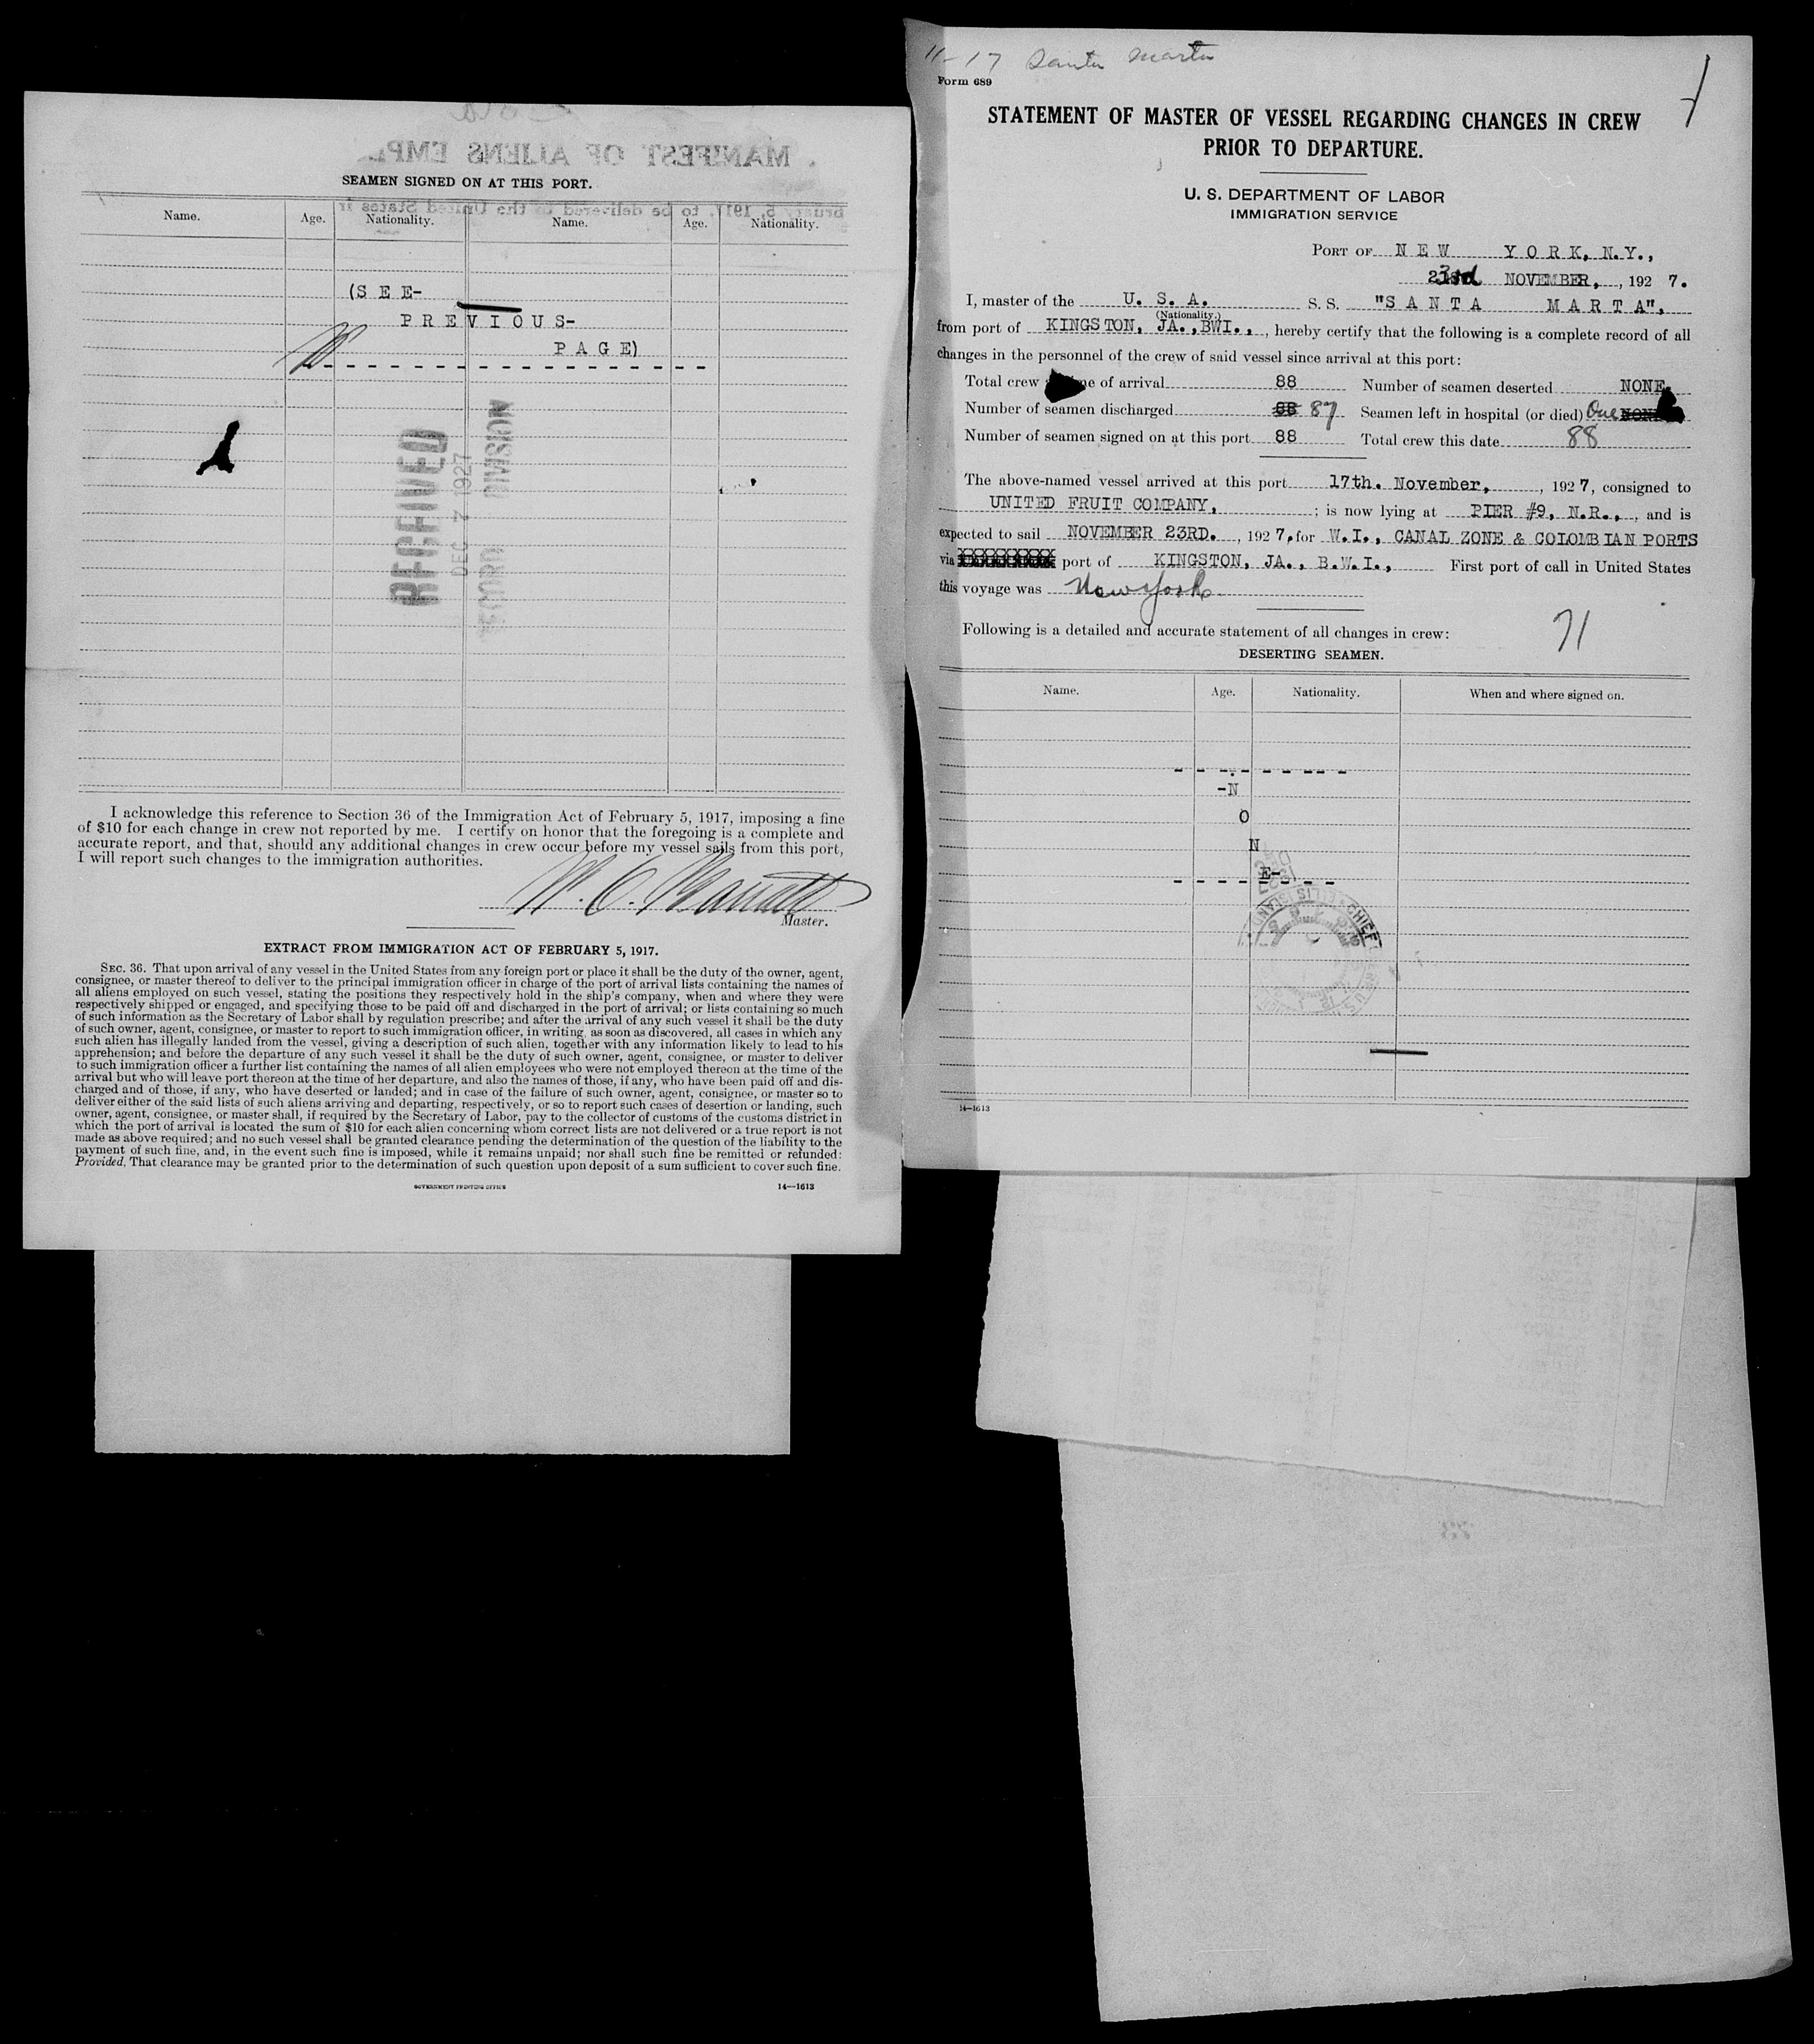 SEAMEN SIGNED ON AT THIS PORT.
Name. Age. Nationality. Name. Age. Nationality.
(S E E-
P R E V I O U S-
P A G E)
RECEIVED
DEC 7 1927
RECORD DIVISION
I acknowledge this reference to Section 36 of the Immigration Act of February 5, 1917, imposing a fine
of $10 for each change in crew not reported by me. I certify on honor that the foregoing is a complete and
accurate report, and that, should any additional changes in crew occur before my vessel sails from this port,
I will report such changes to the immigration authorities.
Master.
EXTRACT FROM IMMIGRATION ACT OF FEBRUARY 5, 1917.
SEC. 36. That upon arrival of any vessel in the United States from any foreign port or place it shall be the duty of the owner, agent,
consignee, or master thereof to deliver to the principal immigration officer in charge of the port of arrival lists containing the names of
all aliens employed on such vessel, stating the positions they respectively hold in the ship's company, when and where they were
respectively shipped or engaged, and specifying those to be paid off and discharged in the port of arrival; or lists containing so much
of such information as the Secretary of Labor shall by regulation prescribe; and after the arrival of any such vessel it shall be the duty
of such owner, agent, consignee, or master to report to such immigration officer, in writing, as soon as discovered, all cases in which any
such alien has illegally landed from the vessel, giving a description of such alien, together with any information likely to lead to his
apprehension; and before the departure of any such vessel it shall be the duty of such owner, agent, consignee, or master to deliver
to such immigration officer a further list containing the names of all alien employees who were not employed thereon at the time of the
arrival but who will leave port thereon at the time of her departure, and also the names of those, if any, who have been paid off and dis-
charged and of those, if any, who have deserted or landed; and in case of the failure of such owner, agent, consignee, or master so to
deliver either of the said lists of such aliens arriving and departing, respectively, or so to report such cases of desertion or landing, such
owner, agent, consignee, or master shall, if required by the Secretary of Labor, pay to the collector of customs of the customs district in
which the port of arrival is located the sum of $10 for each alien concerning whom correct lists are not delivered or a true report is not
made as above required; and no such vessel shall be granted clearance pending the determination of the question of the liability to the
payment of such fine, and, in the event such fine is imposed, while it remains unpaid; nor shall such fine be remitted or refunded:
Provided, That clearance may be granted prior to the determination of such question upon deposit of a sum sufficient to cover such fine.
GOVERNMENT PRINTING OFFICE 14—1613
11-17 Santa Marta
Form 689
STATEMENT OF MASTER OF VESSEL REGARDING CHANGES IN CREW
PRIOR TO DEPARTURE.
U. S. DEPARTMENT OF LABOR
IMMIGRATION SERVICE
PORT OF N E W Y O R K, N.Y.,
23rd NOVEMBER, , 192 7.
I, master of the U. S. A. S. S. "S A N T A M A R T A",
(Nationality.)
from port of KINGSTON, JA.,BWI., , hereby certify that the following is a complete record of all
changes in the personnel of the crew of said vessel since arrival at this port:
Total crew of arrival 88 Number of seamen deserted NONE.
Number of seamen discharged 88 87 Seamen left in hospital (or died) One NONE
Number of seamen signed on at this port 88 Total crew this date 88
The above-named vessel arrived at this port 17th. November, , 192 7, consigned to
UNITED FRUIT COMPANY, ; is now lying at PIER #9, N.R., , and is
expected to sail NOVEMBER 23RD. , 192 7, for W.I., CANAL ZONE & COLOMBIAN PORTS
via port of KINGSTON, JA., B.W.I., First port of call in United States
this voyage was New York
Following is a detailed and accurate statement of all changes in crew: 71
DESERTING SEAMEN.
Name. Age. Nationality. When and where signed on.
-N
O
N
E-
CHIEF
ELLIS ISLAND
14—1613